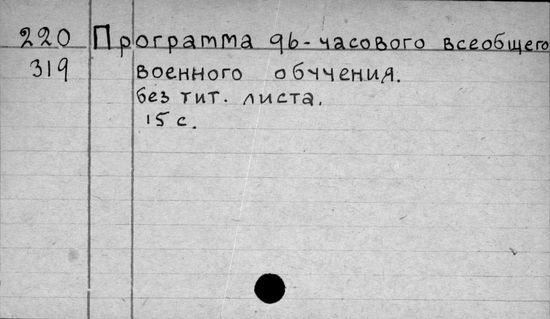 220 Программа 96-часового всеобщего
319 военного обучения.
без тит. листа.
15 с.